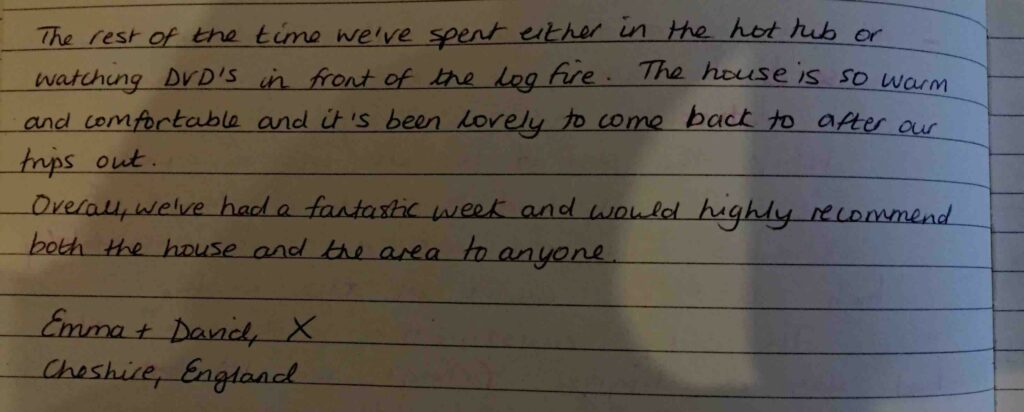 The rest of the time we've spent either in the hot tub or
watching DVD's in front of the log fire. The house is so warm
and comfortable and it's been lovely to come back to after our
trips out.
Overall, we've had a fantastic week and would highly recommend
both the house and the area to anyone.
Emma + David, X
Cheshire, England